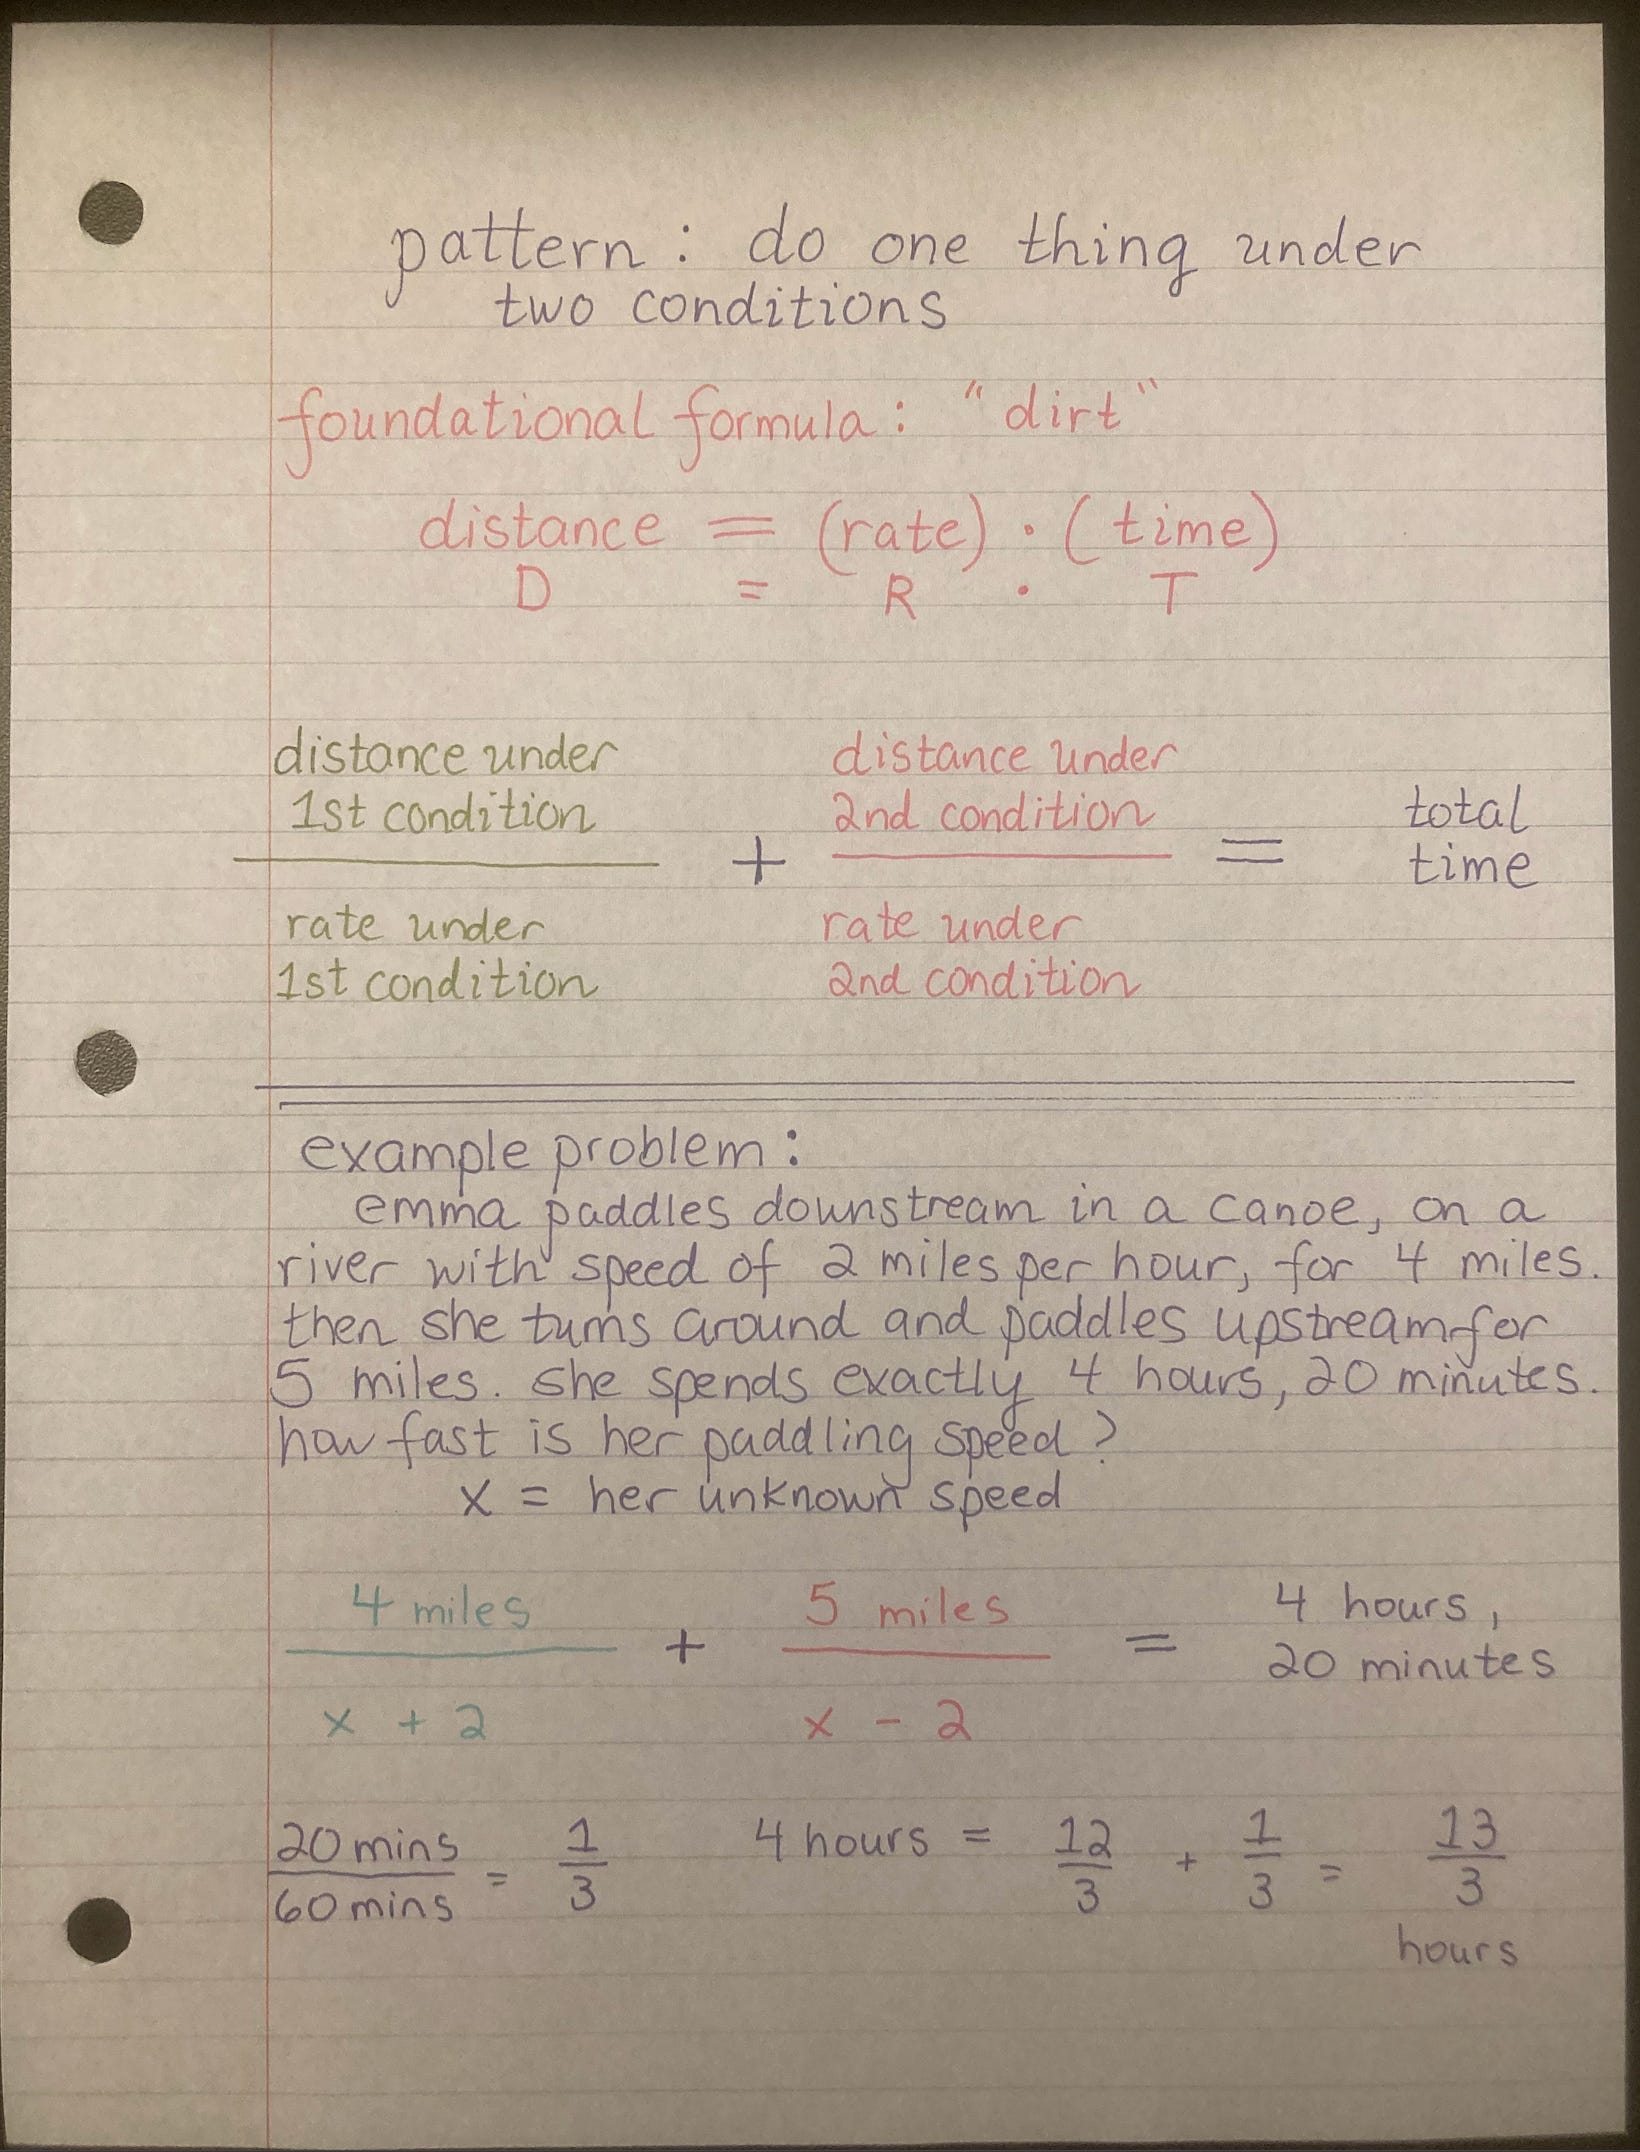 pattern: do one thing under
two conditions
foundational formula: "dirt"
distance = (rate) · (time)
D = R · T
distance under distance under
1st condition 2nd condition total
+ = time
rate under rate under
1st condition 2nd condition
example problem:
emma paddles downstream in a canoe, on a
river with speed of 2 miles per hour, for 4 miles.
then she turns around and paddles upstream for
5 miles. she spends exactly 4 hours, 20 minutes.
how fast is her paddling speed?
x = her unknown speed
4 miles 5 miles 4 hours,
+ = 20 minutes
x + 2 x - 2
20 mins / 60 mins = 1/3 4 hours = 12/3 + 1/3 = 13/3
hours